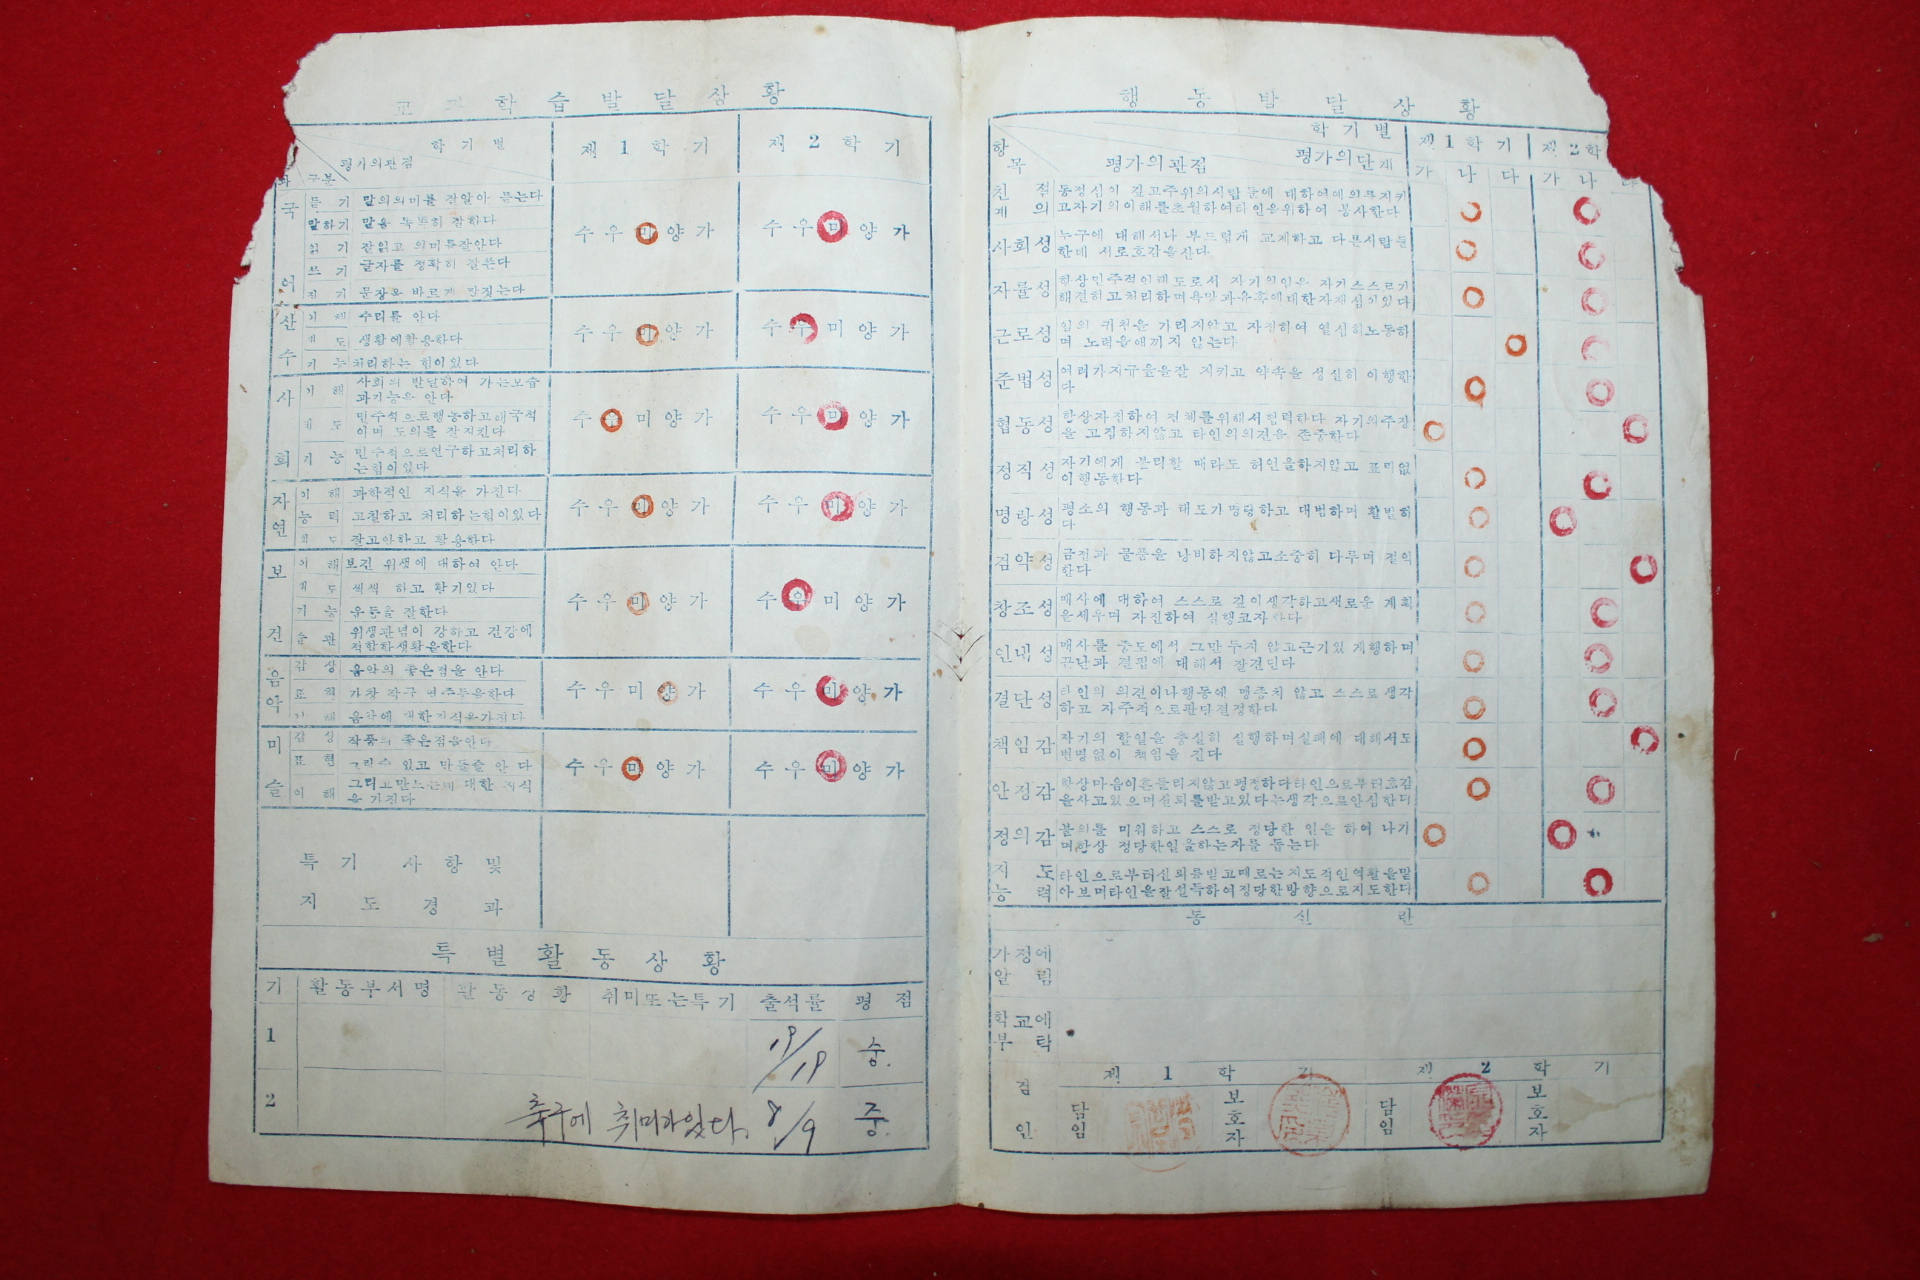 교 과 학 습 발 달 상 황
학 기 별
평가의관점
과 구분
제 1 학 기
제 2 학 기
국 어
듣 기 말의의미를 잘알아 듣는다
말하기 말을 똑똑히 잘하다
읽 기 잘읽고 의미를잘안다
쓰 기 글자를 정확히 잘쓴다
짓 기 문장을 바르게 잘짓는다
수 우 미 양 가
수 우 미 양 가
산 수
이 해 수리를 안다
태 도 생활에활용하다
기 능 처리하는 힘이있다
수 우 미 양 가
수 우 미 양 가
사 회
이 해 사회의 발달하여 가는모습
과기능을 안다
태 도 민주적으로행동하고애국적
이며 도의를 잘지킨다
기 능 민주적으로연구하고처리하
는힘이있다
수 우 미 양 가
수 우 미 양 가
자 연
이 해 과학적인 지식을 가진다
능 력 고찰하고 처리하는힘이있다
태 도 잘고안하고 활용하다
수 우 미 양 가
수 우 미 양 가
보 건
이 해 보건 위생에 대하여 안다
태 도 씩씩 하고 활기있다
기 능 운동을 잘한다
습 관 위생관념이 강하고 건강에
적합한생활을한다
수 우 미 양 가
수 우 미 양 가
음 악
감 상 음악의 좋은점을 안다
표 현 가창 작곡 연주등을한다
이 해 음악에 대한지식을가진다
수 우 미 양 가
수 우 미 양 가
미 술
감 상 작품의 좋은점을안다
표 현 그릴수 있고 만들줄 안 다
이 해 그리고만드는데 대한 지식
을 가진다
수 우 미 양 가
수 우 미 양 가
특 기 사 항 및
지 도 경 과
특 별 활 동 상 황
기 활동부서명 활 동 상 황 취미또는특기 출석률 평 점
1 19/19 중.
2 축구에 취미가있다. 8/9 중.
행 동 발 달 상 황
학 기 별
평가의단계
항 목 평가의관점
제 1 학 기 제 2 학
가 나 다 가 나 다
친 절 예 의 동정심이 깊고주위의사람들에 대하여예의를지키
고자기의이해를초월하여타인을위하여 봉사한다
사회성 누구에 대해서나 부드럽게 교제하고 다른사람들
한테 서로호감을산다
자률성 항상민주적인태도로서 자기의일은 자기스스로가
해결하고처리하며욕망과유혹에대한자제심이있다
근로성 일의 귀천을 가리지않고 자진하여 열심히노동하
며 노력을애끼지 않는다
준법성 여러가지규율을잘 지키고 약속을 성실히 이행한
다
협동성 항상자진하여 전체를위해서협력하다 자기의주장
을 고집하지않고 타인의의견을 존중한다
정직성 자기에게 불리할 때라도 허언을하지않고 표리없
이행동한다
명랑성 평소의 행동과 태도가명랑하고 대범하며 활발하
다
검약성 금전과 물품을 낭비하지않고소중히 다루며 절약
한다
창조성 매사에 대하여 스스로 깊이생각하고새로운 계획
을세우며 자진하여 실행코자한다
인내성 매사를 중도에서 그만두지 않고근기있 게행하며
곤난과 결핍에 대해서 잘견딘다
결단성 타인의 의견이나행동에 맹종치 않고 스스로생각
하고 자주적으로판단결정한다
책임감 자기의 할일을 충실히 실행하며실패에 대해서도
변명없이 책임을 진다
안정감 항상마음이흔들리지않고평정하다타인으로부터호감
을사고있으며신뢰를받고있다는생각으로안심한다
정의감 불의를 미워하고 스스로 정당한 일을 하여 나가
며항상 정당한일을하는자를 돕는다
지 도 능 력 타인으로부터신뢰를받고때로는지도적인역할을맡
아보며타인을잘설득하여정당한방향으로지도한다
통 신 란
가정에
알 림
학교에
부 탁
검 인
제 1 학 기 제 2 학 기
담임 보호자 담임 보호자